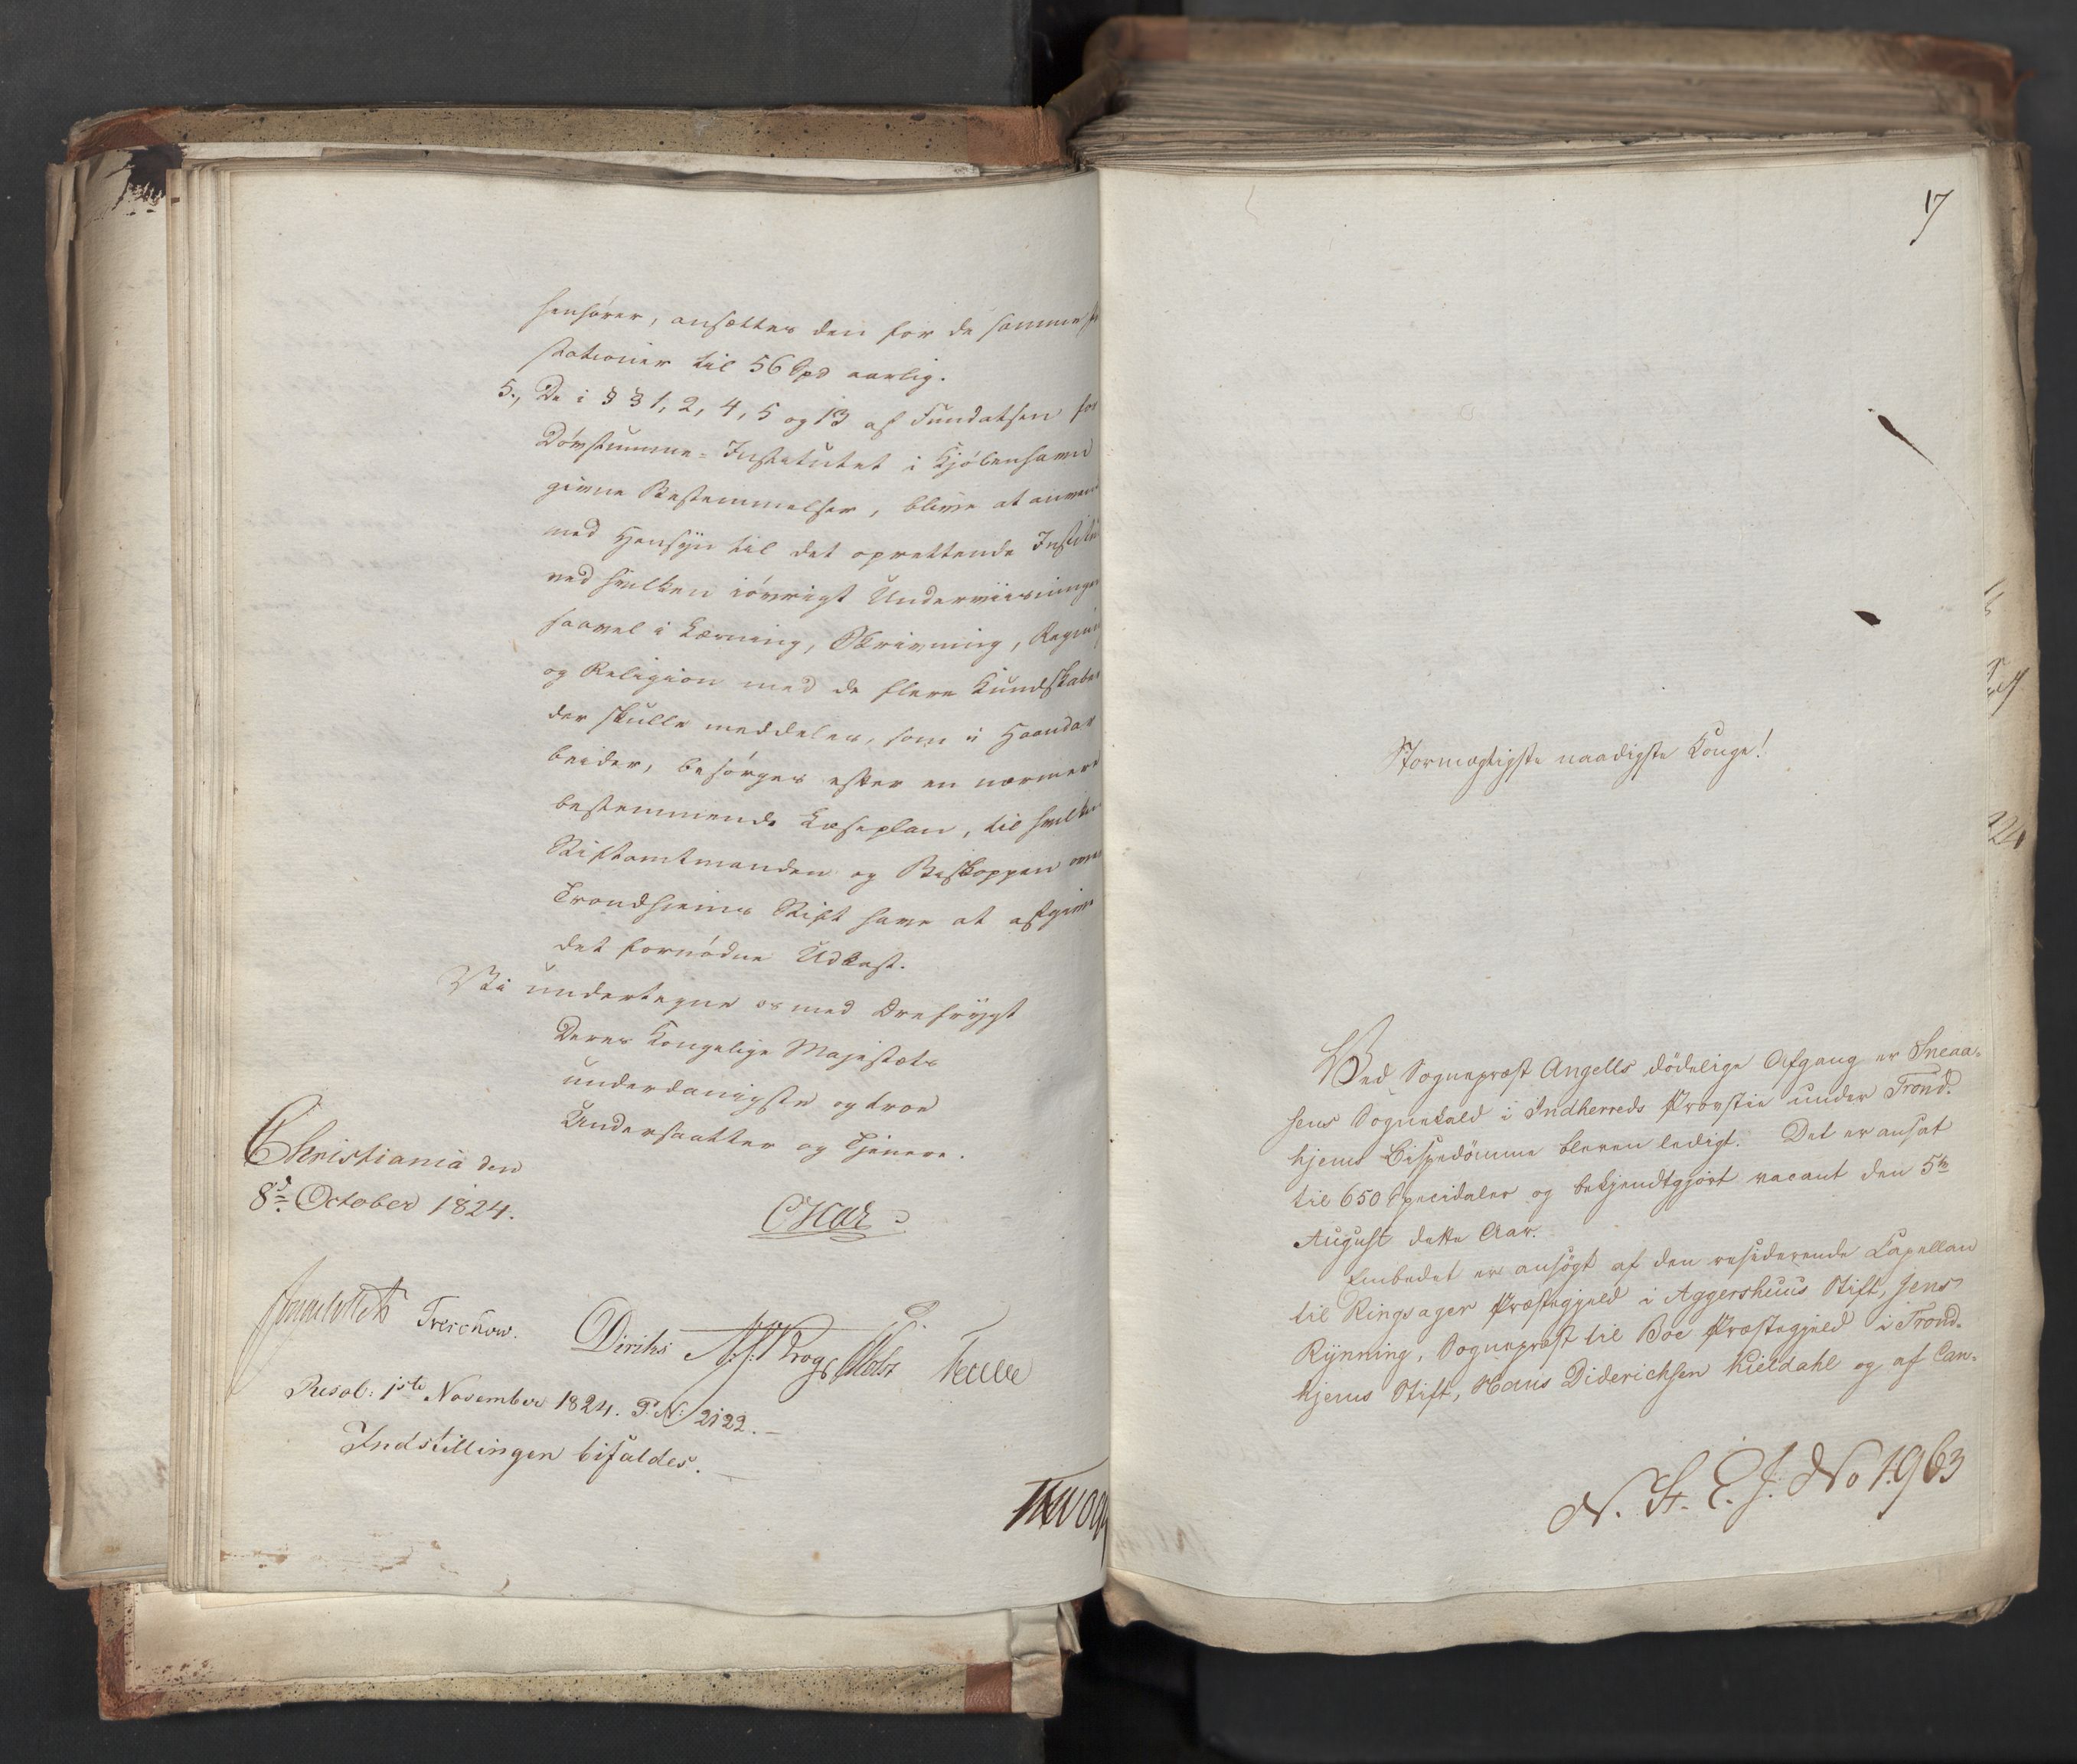 henhører, ansættes den for de samme
stationer til 56 Spd aarlig.
5., De i §§ 1, 2, 4, 5 og 13 af Fundatsen for
Døvstumme-Institutet i Kjøbenhavn
givne Bestemmelser, blive at anven
med Hensÿn til det oprettende Institu
ved hvilken iøvrigt Underviisningen
saavel i Læsning, Skrivning, Regni
og Religion med de flere Kundskaber
der skulle meddeles, som i Haandar
beider, besørges efter en nærmere
bestemmende Læseplan, til hvilken
Stiftamtmanden og Biskoppen over
Trondhiems Stift have at afgive
det fornødne Udkast.
Vi undertegne os med Ærefrygt
Deres Kongelige Majestæts
underdanigste og troe
Undersaatter og Tjenere.
Christiania den
8de October 1824.
Oscar
Treschow. Diriks Krog
Resol: 1ste November 1824. P. N: 2122.
Indstillingen bifaldes.
17
Stormægtigste naadigste Konge!
Ved Sognepræst Angells dödelige Afgang er Sneaa-
sens Sognekald i Indherreds Provstie under Trond-
hjems Bispedömme bleven ledigt. Det er ansat
til 650 Speciedaler og bekjendtgjort vacant den 5te
August dette Aar.
Embedet er ansögt af den residerende Capellan
til Ringsager Præstegjeld i Aggershuus Stift, Jens
Rÿnning, Sognepræst til Boe Præstegjeld i Trond-
hjems Stift, Hans Diderichsen Kieldahl og af Can-
N. St. E. J. No 1963